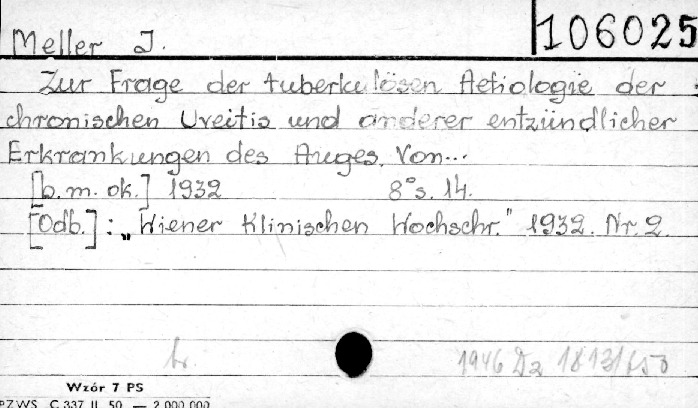 106025
Meller J.
Zur Frage der tuberkulösen Aetiologie der
chronischen Uveitis und anderer entzündlicher
Erkrankungen des Auges. Von...
[b.m. ok.] 1932 8° s. 14.
[Odb.]: „Wiener Klinischen Wochschr." 1932. Nr. 2.
br. 1946 Dz 1813/653
Wzór 7 PS
PZWS C 337 II 50 — 2 000 000